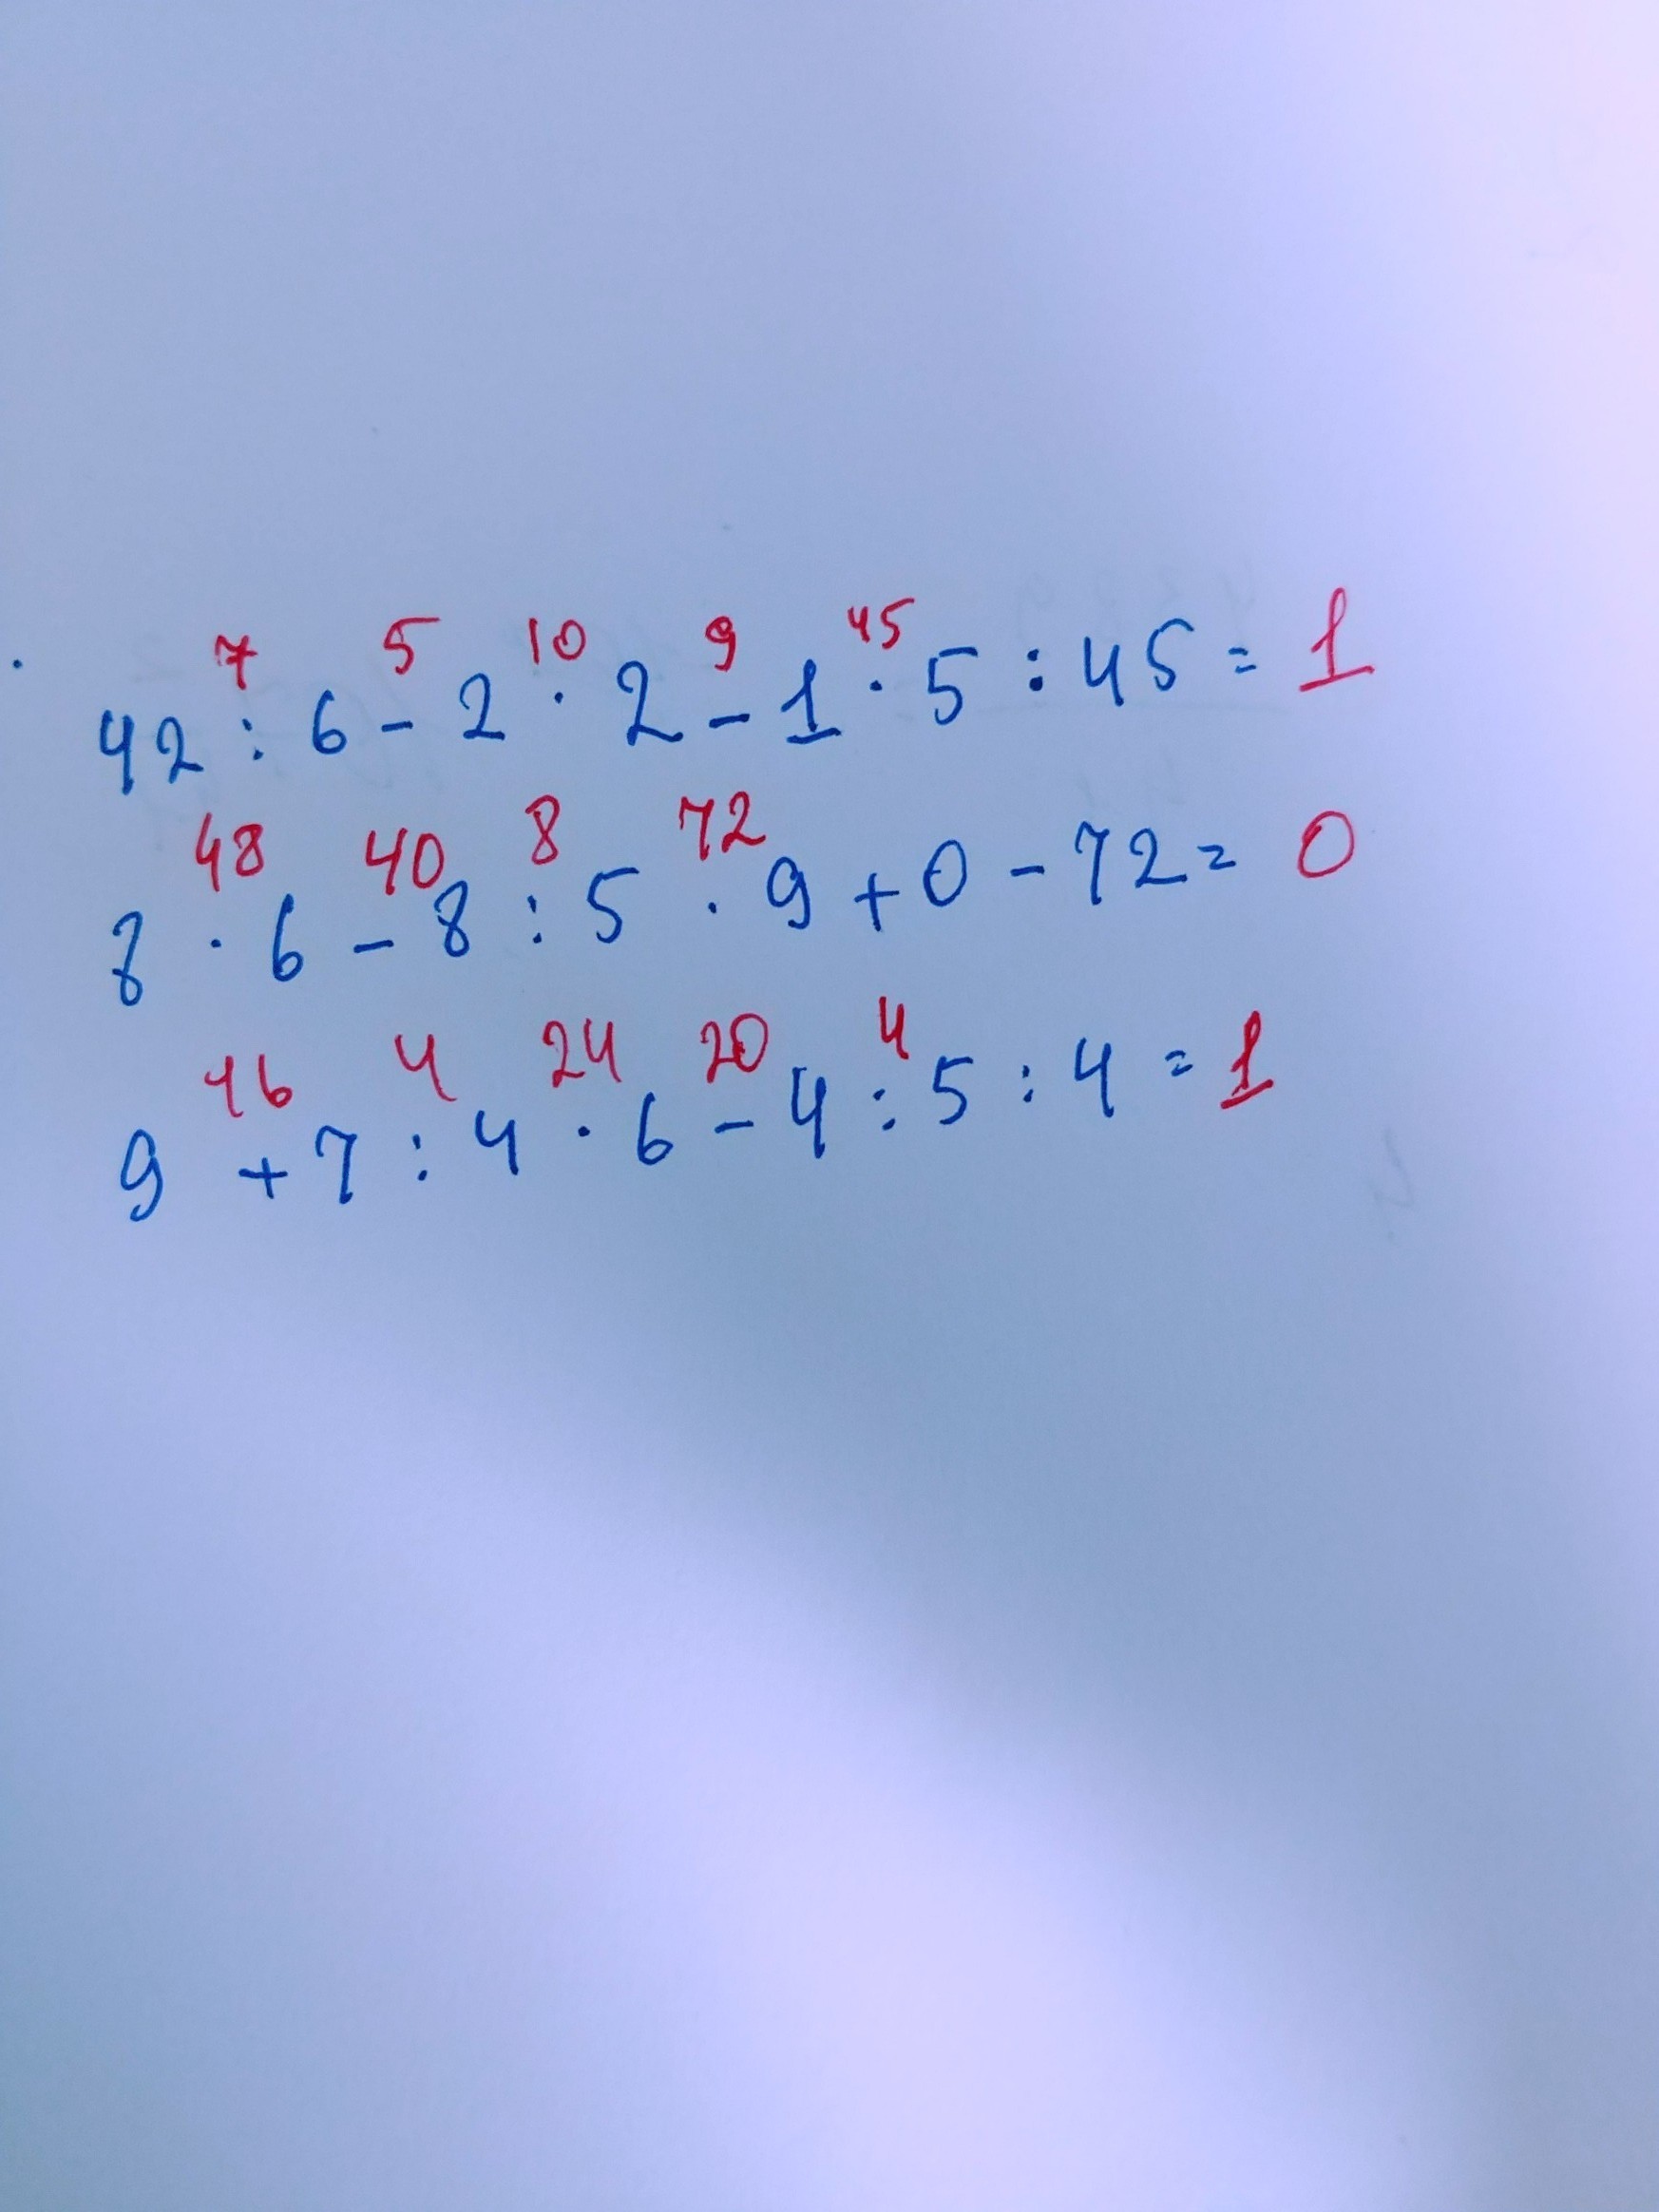 7 5 10 9 45
42 : 6 - 2 · 2 - 1 · 5 : 45 = 1
48 40 8 72
8 · 6 - 8 : 5 · 9 + 0 - 72 = 0
16 4 24 20 4
9 + 7 : 4 · 6 - 4 : 5 : 4 = 1